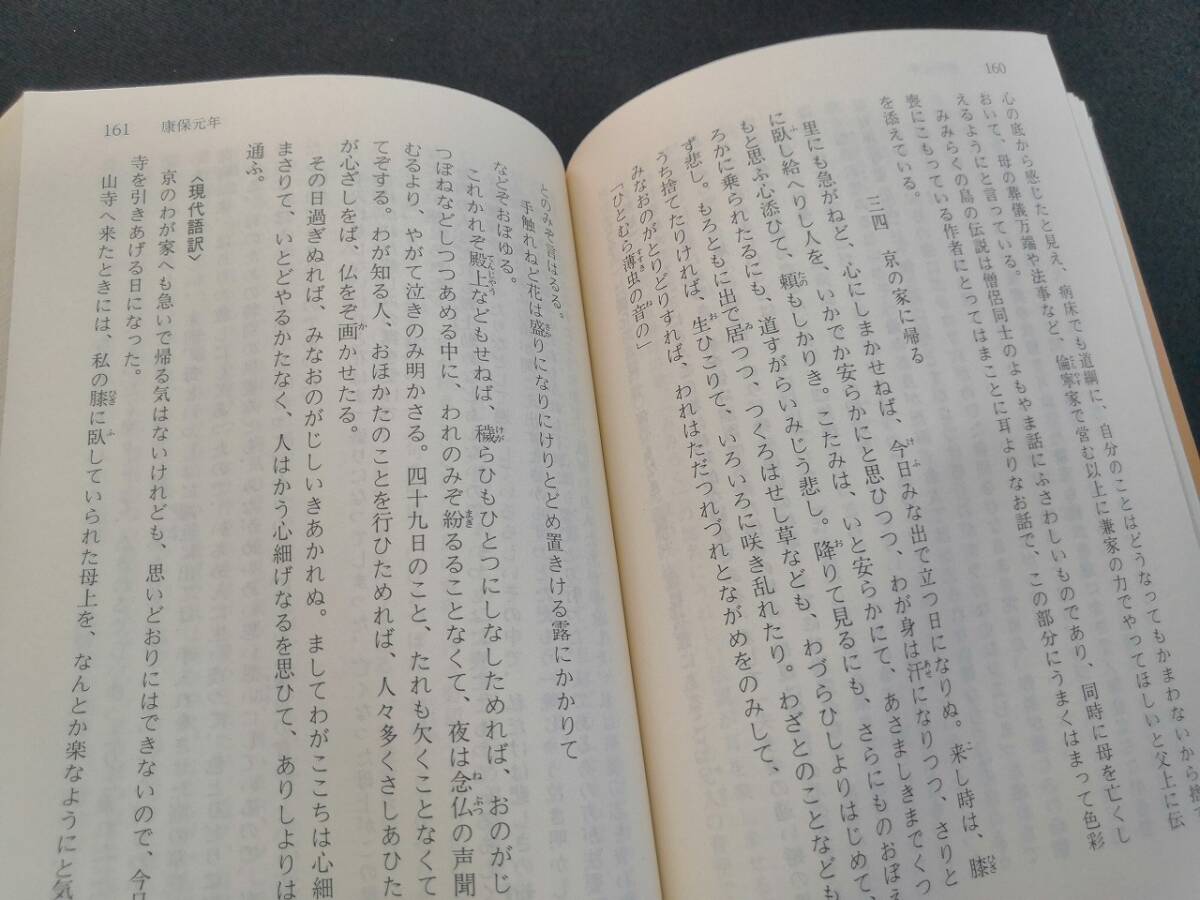 160
心の底から感じたと見え、病床でも道綱に、自分のことはどうなってもかまわないから捨て
おいて、母の葬儀万端や法事など、倫寧家で営む以上に兼家の力でやってほしいと父上に伝
えるようにと言っている。
みみらくの島の伝説は僧侶同士のよもやま話にふさわしいものであり、同時に母を亡くし
喪にこもっている作者にとってはまことに耳よりなお話で、この部分にうまくはまって色彩
を添えている。
三四 京の家に帰る
里にも急がねど、心にしまかせねば、今日みな出で立つ日になりぬ。来し時は、膝
に臥し給へりし人を、いかでか安らかにと思ひつつ、わが身は汗になりつつ、さりと
もと思ふ心添ひて、頼もしかりき。こたみは、いと安らかにて、あさましきまでくつ
ろかに乗られたるにも、道すがらいみじう悲し。降りて見るにも、さらにものおぼえ
ず悲し。もろともに出で居つつ、つくろはせし草なども、わづらひしよりはじめて、
うち捨てたりければ、生ひこりて、いろいろに咲き乱れたり。わざとのことなども
みなおのがとりどりすれば、われはただつれづれとながめをのみして、
「ひとむら薄虫の音の」
161 康保元年
とのみぞ言はるる。
手触れねど花は盛りになりにけりとどめ置きける露にかかりて
などぞおぼゆる。
これかれぞ殿上などもせねば、穢らひもひとつにしなしためれば、おのがじ
つぼねなどしつつあめる中に、われのみぞ紛るることなくて、夜は念仏の声聞
むるより、やがて泣きのみ明かさる。四十九日のこと、たれも欠くことなくて
てぞする。わが知る人、おほかたのことを行ひためれば、人々多くさしあひた
が心ざしをば、仏をぞ画かせたる。
その日過ぎぬれば、みなおのがじしいきあかれぬ。ましてわがここちは心細
まさりて、いとどやるかたなく、人はかう心細げなるを思ひて、ありしよりは
通ふ。
〈現代語訳〉
京のわが家へも急いで帰る気はないけれども、思いどおりにはできないので、今日
寺を引きあげる日になった。
山寺へ来たときには、私の膝に臥していられた母上を、なんとか楽なようにと気